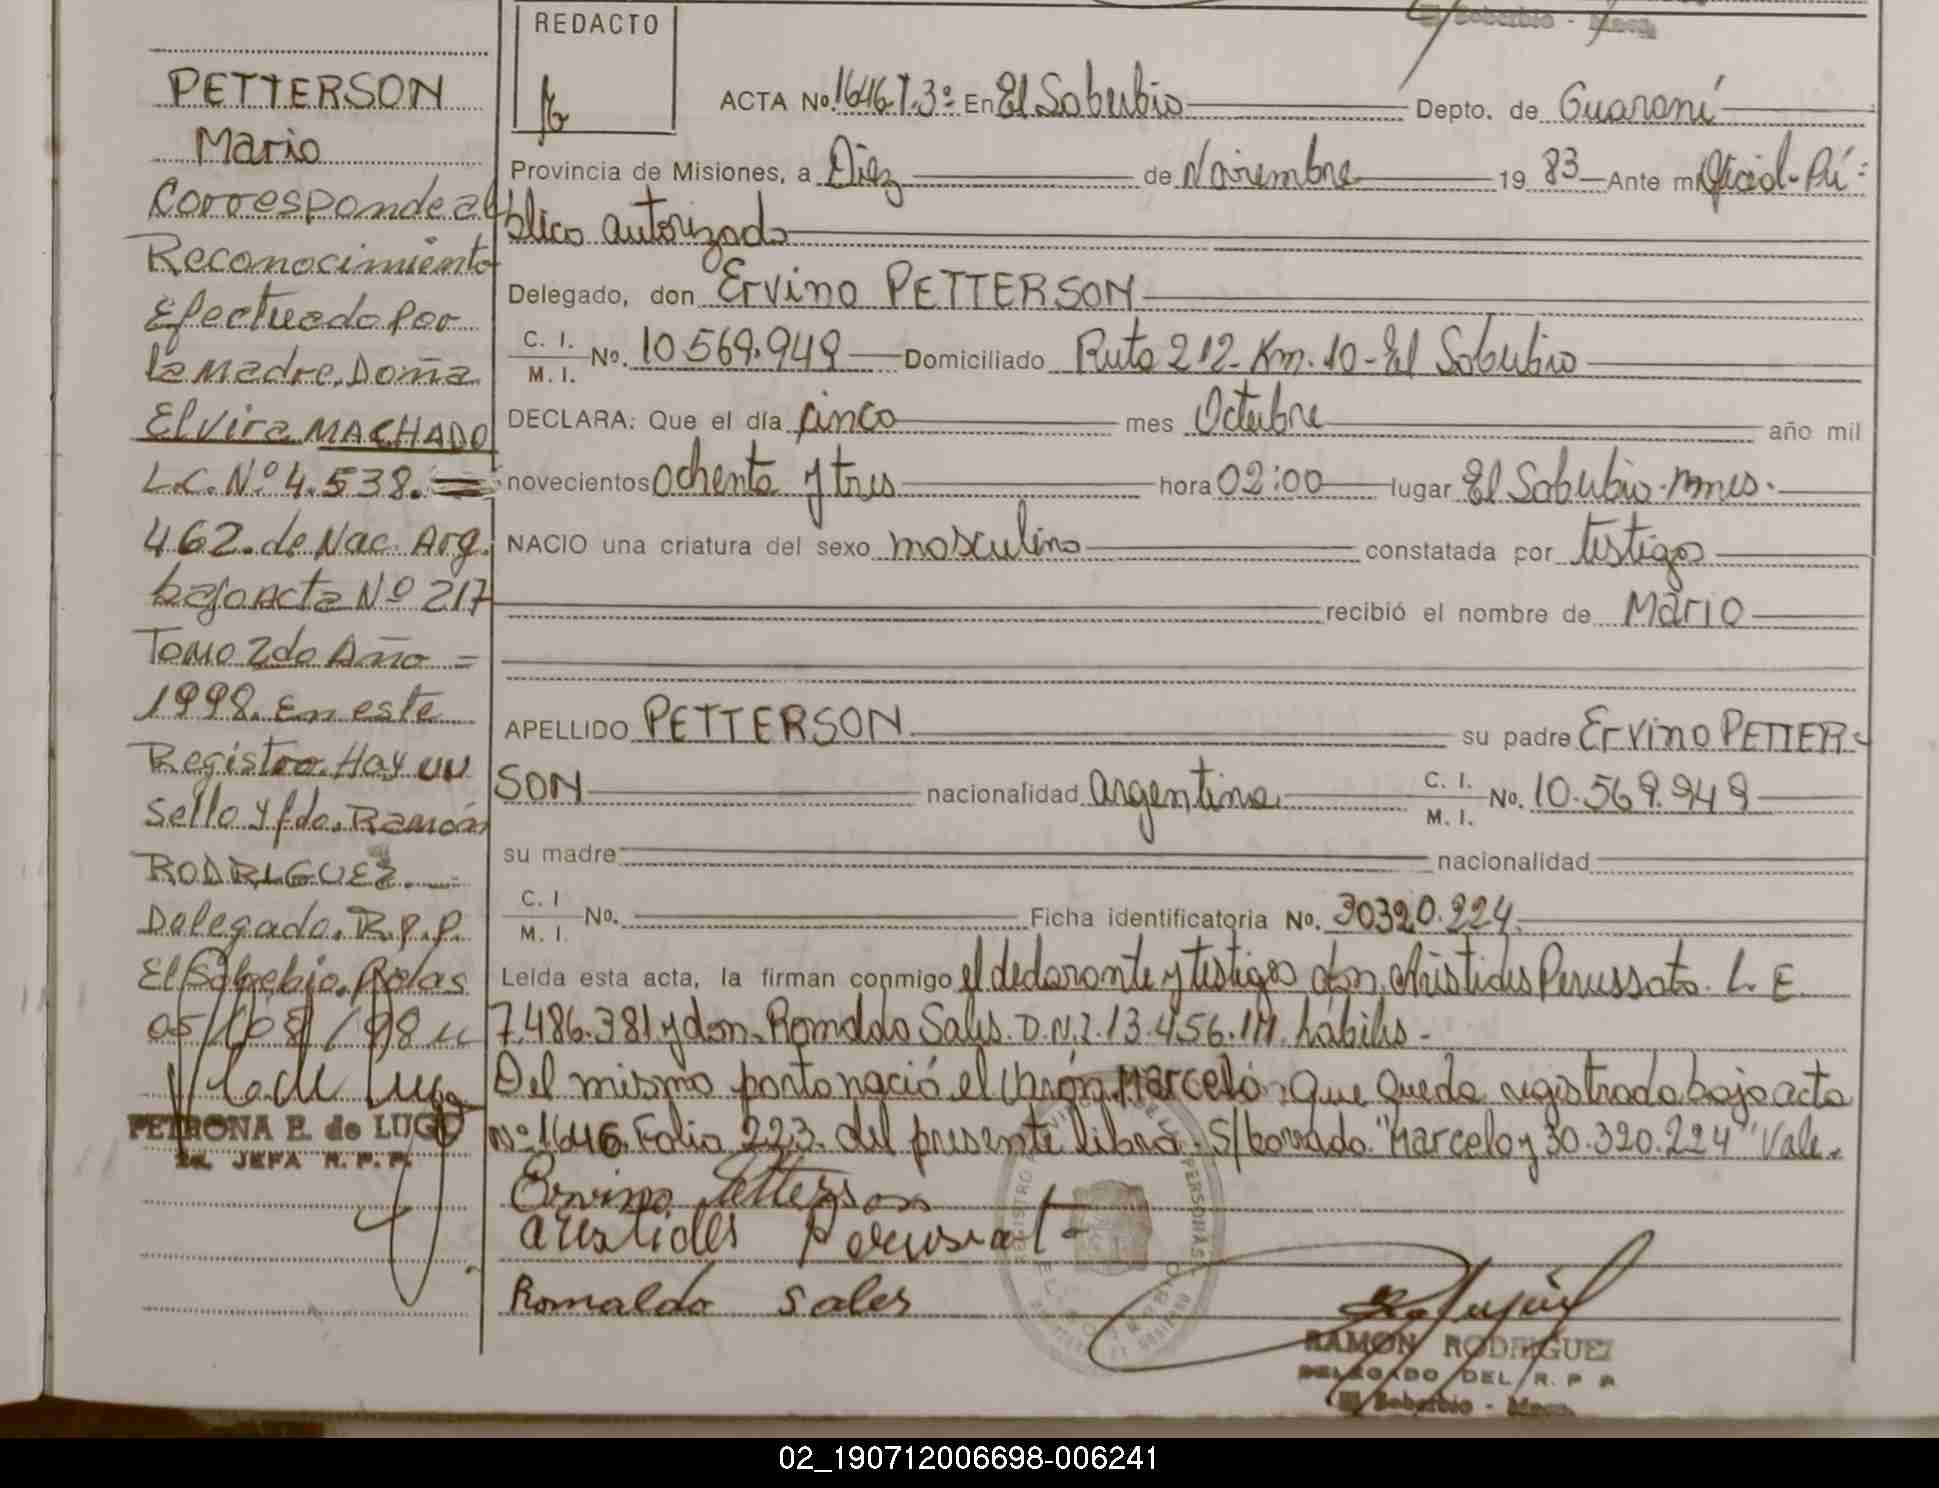 PETTERSON
Mario
Corresponde al
Reconocimiento
Efectuado Por
la Madre, Doña
Elvira MACHADO
L.C. Nº 4.538.=
462. de Nac. Arg.
bajo Acta Nº 217
Tomo 2do Año =
1998. En este
Registro. Hay un
Sello y fdo. Ramón
RODRIGUEZ.
Delegado. R.P.P.
El Soberbio. Pdas
05/08/98
PETRONA E. de LUGO
JEFA R. P. P.
REDACTO
Soberbio -
ACTA No. 1646 T. 3º En El Soberbio Depto. de Guaraní
Provincia de Misiones, a Diez de Noviembre 19 83 Ante mi Oficial Pú-
blico autorizado
Delegado, don Ervino PETTERSON
C. I.
M. I. No. 10.569.949 Domiciliado Ruta 212 Km. 10 - El Soberbio
DECLARA: Que el día cinco mes Octubre año mil
novecientos ochenta y tres hora 02:00 lugar El Soberbio - Mnes.
NACIO una criatura del sexo masculino constatada por testigos
recibió el nombre de Mario
APELLIDO PETTERSON su padre Ervino PETTER-
SON nacionalidad argentina C. I.
M. I. No. 10.569.949
su madre nacionalidad
C. I
M. I. No. Ficha identificatoria No. 30320.224
Leída esta acta, la firman conmigo el declarante y testigos don Aristides Perussato. L. E.
7.486.381 y don Romaldo Sales. D.N.I. 13.456.111. hábiles -
Del mismo parto nació el varón, Marcelo, que queda registrado bajo acta
Nº 1646. Folio 223. del presente libro. S/borrado "Marcelo y 30.320.224" Vale.
Ervino Petterson
Aristides Perussato
Romaldo Sales
RAMON RODRIGUEZ
DELEGADO DEL R. P. P.
El Soberbio - Mnes.
02_190712006698-006241